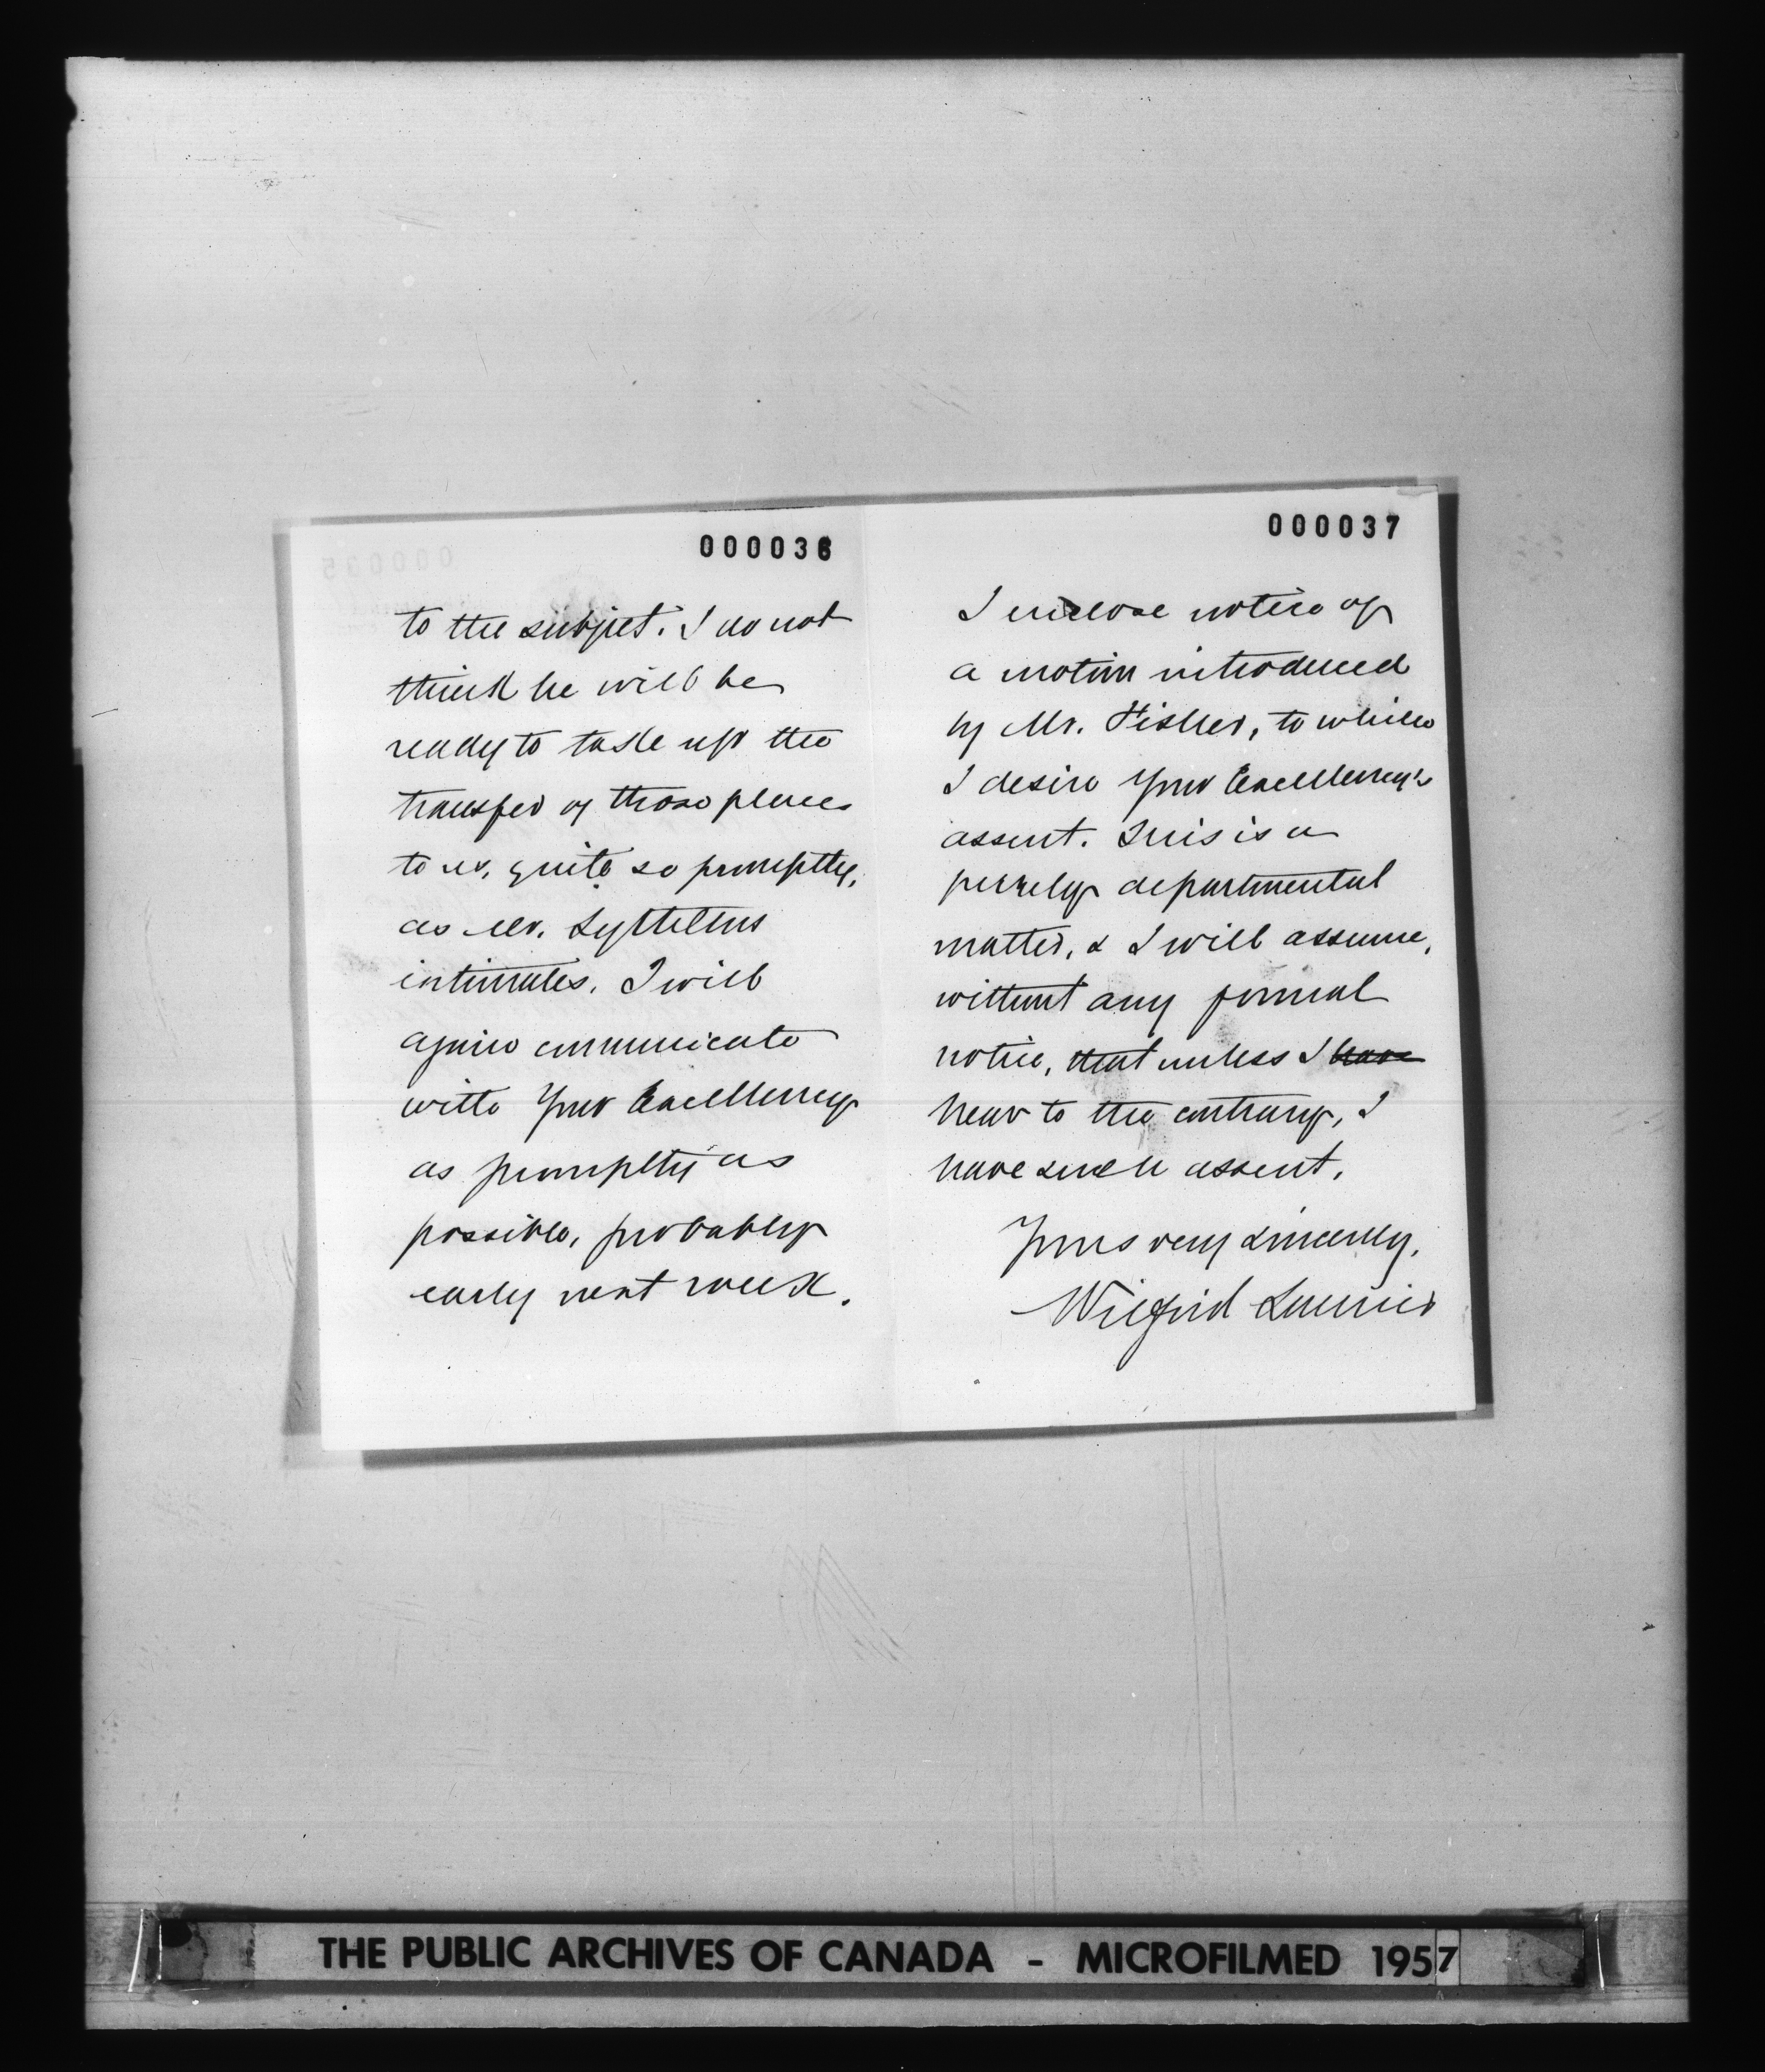 000036
to the subject. I do not
think he will be
ready to take up the
transfer of those places
to us, quite so promptly,
as Mr. Lyttelton
intimates. I will
again communicate
with Your Excellency
as promptly as
possible, probably
early next week.
000037
I enclose notice of
a motion introduced
by Mr. Fisher, to which
I desire Your Excellency's
assent. This is a
purely departmental
matter, & I will assume,
without any formal
notice, that unless I have
hear to the contrary, I
have such assent.
Yours very sincerely,
Wilfrid Laurier
THE PUBLIC ARCHIVES OF CANADA - MICROFILMED 1957